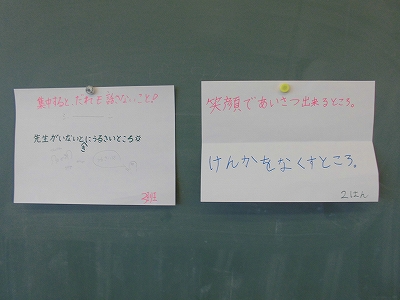 集中すると、だれも話さないこと。
先生がいないときにうるさいところ。
3班
笑顔であいさつ出来るところ。
けんかをなくすところ。
2はん